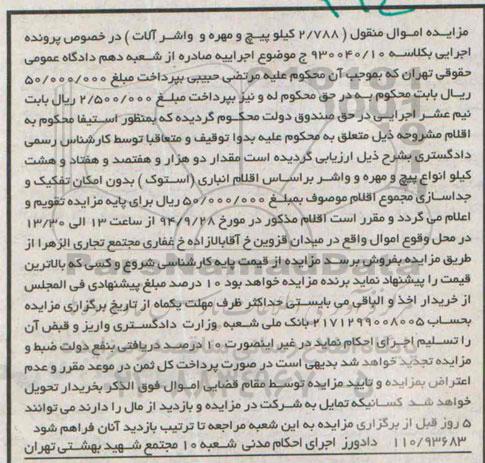 مزایـده امـوال منقول ( ۲/۷۸۸ کیلو پیـچ و مهره و واشـر آلات ) در خصوص پرونده
اجرایی بکلاسـه ۹۳۰۰۴۰/۱۰ ج موضوع اجراییه صادره از شـعبه دهم دادگاه عمومی
حقوقی تهران که بموجب آن محکوم علیه مرتضی حبیبی بپرداخت مبلغ ۵۰/۰۰۰/۰۰۰
ریـال بابت محکوم بـه در حق محکوم له و نیز بپرداخت مبلـغ ۲/۵۰۰/۰۰۰ ریال بابت
نیم عشـر اجرایـی در حق صندوق دولت محکـوم گردیده که بمنظور اسـتیفا محکوم به
اقلام مشـروحه ذیل متعلق به محکوم علیه بدوا توقیف و متعاقبا توسط کارشناس رسمی
دادگستری بشرح ذیل ارزیابی گردیده است مقدار دو هزار و هفتصد و هفتاد و هشت
کیلو انواع پیچ و مهره و واشـر بر اسـاس اقلام انباری (اسـتوک ) بدون امکان تفکیک و
جداسـازی مجموع اقلام موصوف بمبلـغ ۵۰/۰۰۰/۰۰۰ ریال برای پایه مزایده تقویم و
اعلام می گردد و مقرر است اقلام مذکور در مورخ ۹۴/۹/۲۸ از ساعت ۱۳ الی ۱۳/۳۰
در محل وقوع اموال واقع در میدان قزوین خ آقابالازاده خ غفاری مجتمع تجاری الزهرا از
طریق مزایده بفروش برسـد مزایده از قیمت پایه کارشناسی شروع و کسی که بالاترین
قیمت را پیشنهاد نماید برنده مزایده خواهد بود ۱۰ درصد مبلغ پیشنهادی فی المجلس
از خریدار اخذ و الباقی می بایستی حداکثر ظرف مهلت یکماه از تاریخ برگزاری مزایده
بحساب ۲۱۷۱۲۹۹۰۰۸۰۰۵ بانک ملی شـعبه وزارت دادگسـتری واریز و قبض آن
را تسـلیم اجـرای احکام نماید در غیر اینصورت ۱۰ درصـد دریافتی بنفع دولت ضبط و
مزایده تجدید خواهد شد بدیهی است در صورت پرداخت کل ثمن در موعد مقرر و عدم
اعتراض بمزایده و تایید مزایده توسـط مقام قضایی امـوال فوق الذکر بخریدار تحویل
خواهد شـد کسـانیکه تمایل به شـرکت در مزایده و بازدید از مال را دارند می توانند
۵ روز قبل از برگزاری مزایده به این شعبه مراجعه تا ترتیب بازدید آنان فراهم شود
۱۱۰/۹۳۶۸۳ دادورز اجرای احکام مدنی شـعبه ۱۰ مجتمع شـهید بهشـتی تهران